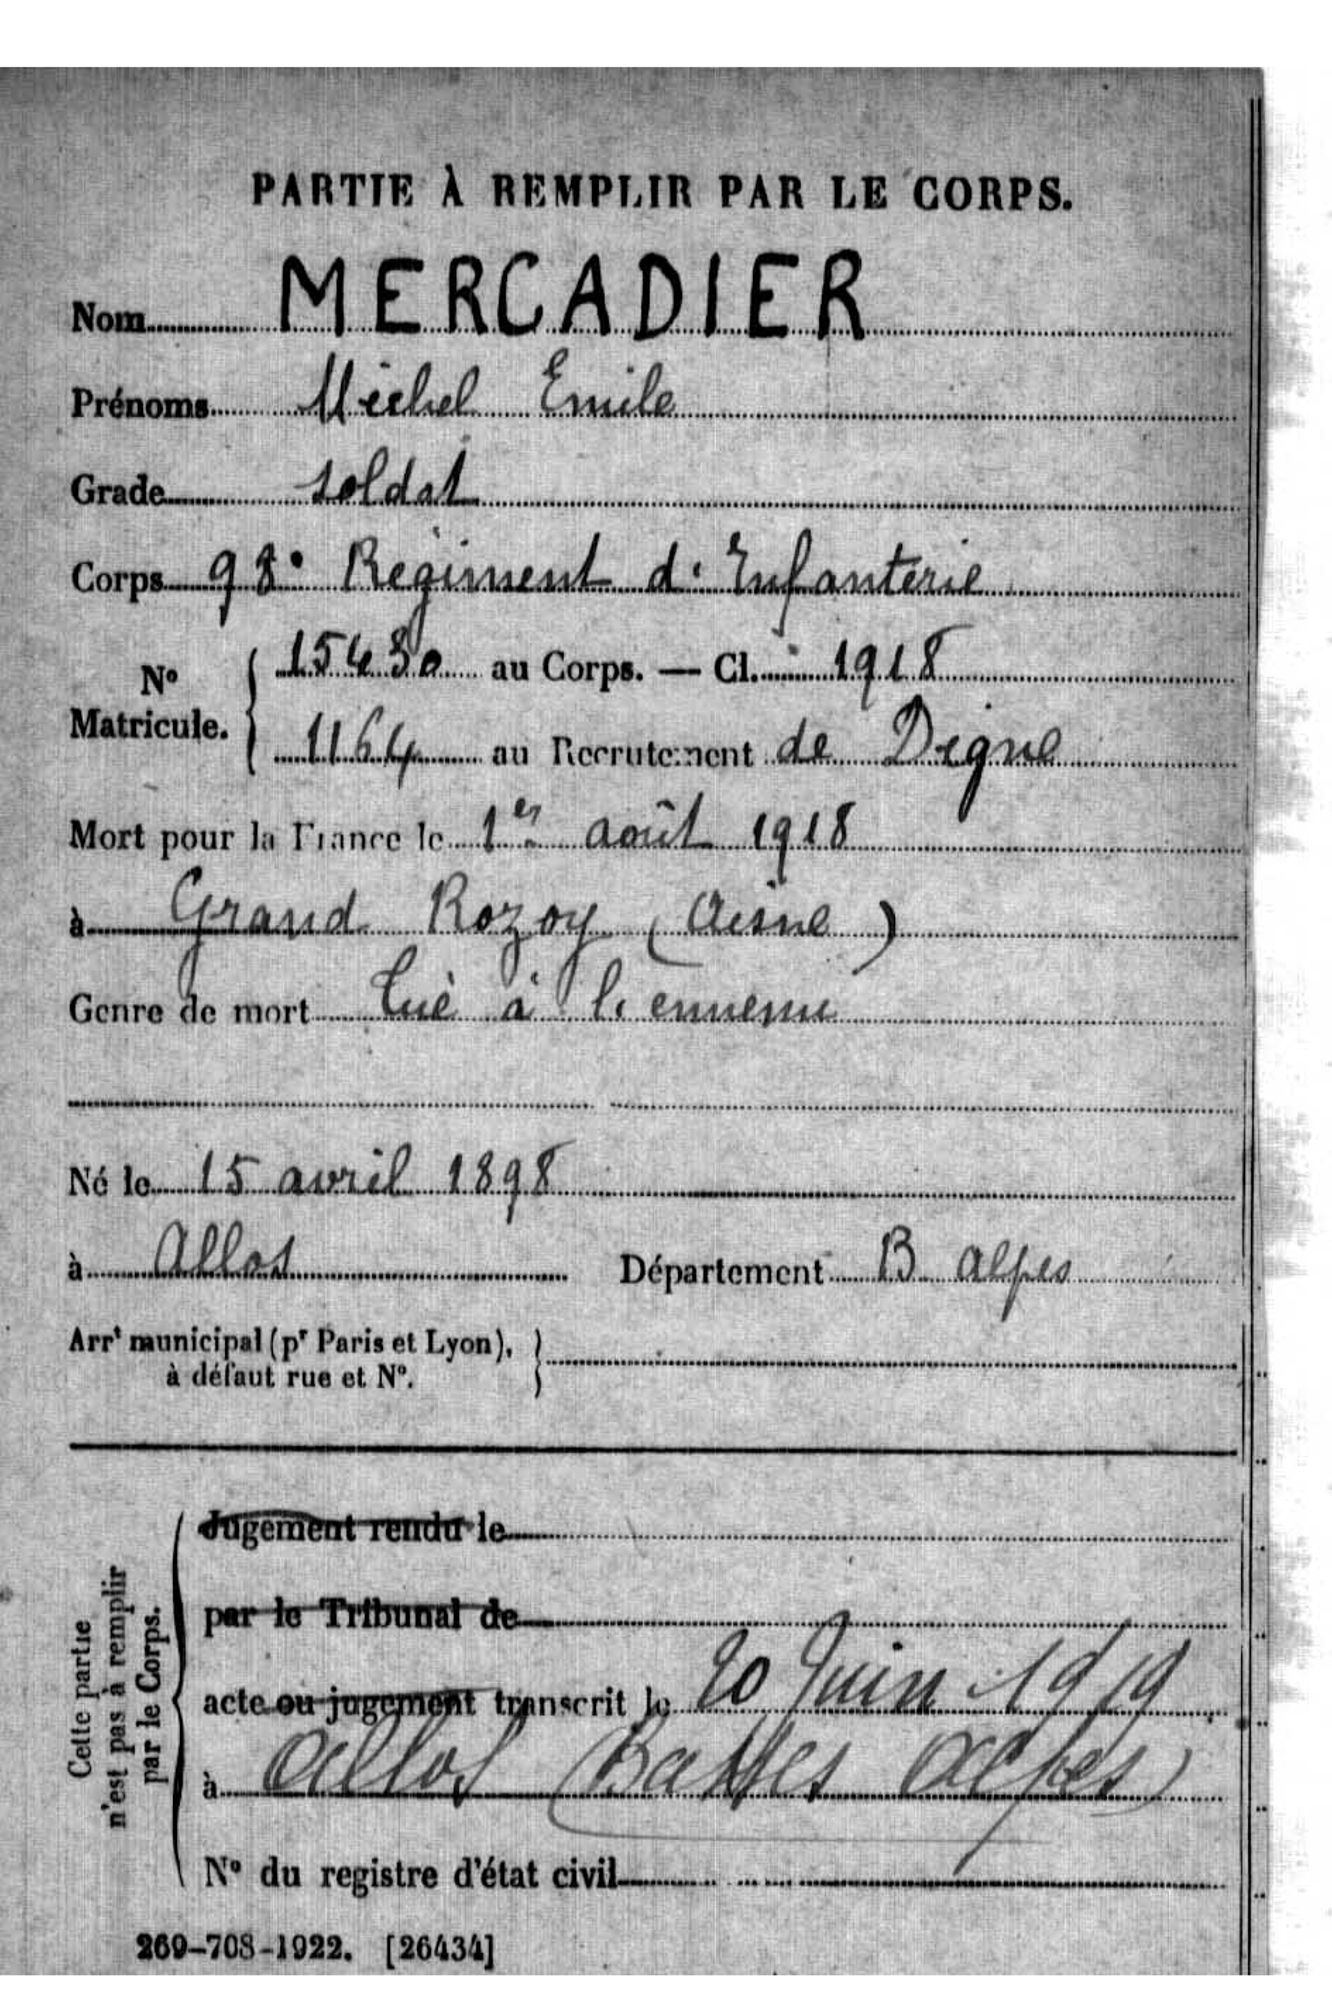 PARTIE À REMPLIR PAR LE CORPS.
Nom MERCADIER
Prénoms Michel Emile
Grade soldat
Corps 98e Régiment d'Infanterie
No Matricule. { 15430 au Corps. — Cl. 1918
1164 au Recrutement de Digne
Mort pour la France le 1er août 1918
à Grand Rozoy (Aisne)
Genre de mort Tué à l'ennemi
Né le 15 avril 1898
à Allos Département B Alpes
Arrt municipal (pr Paris et Lyon),
à défaut rue et No.
Cette partie
n'est pas à remplir
par le Corps.
Jugement rendu le
par le Tribunal de
acte ou jugement transcrit le 20 Juin 1919
à Allos (Basses Alpes)
No du registre d'état civil
269-708-1922. [26434]